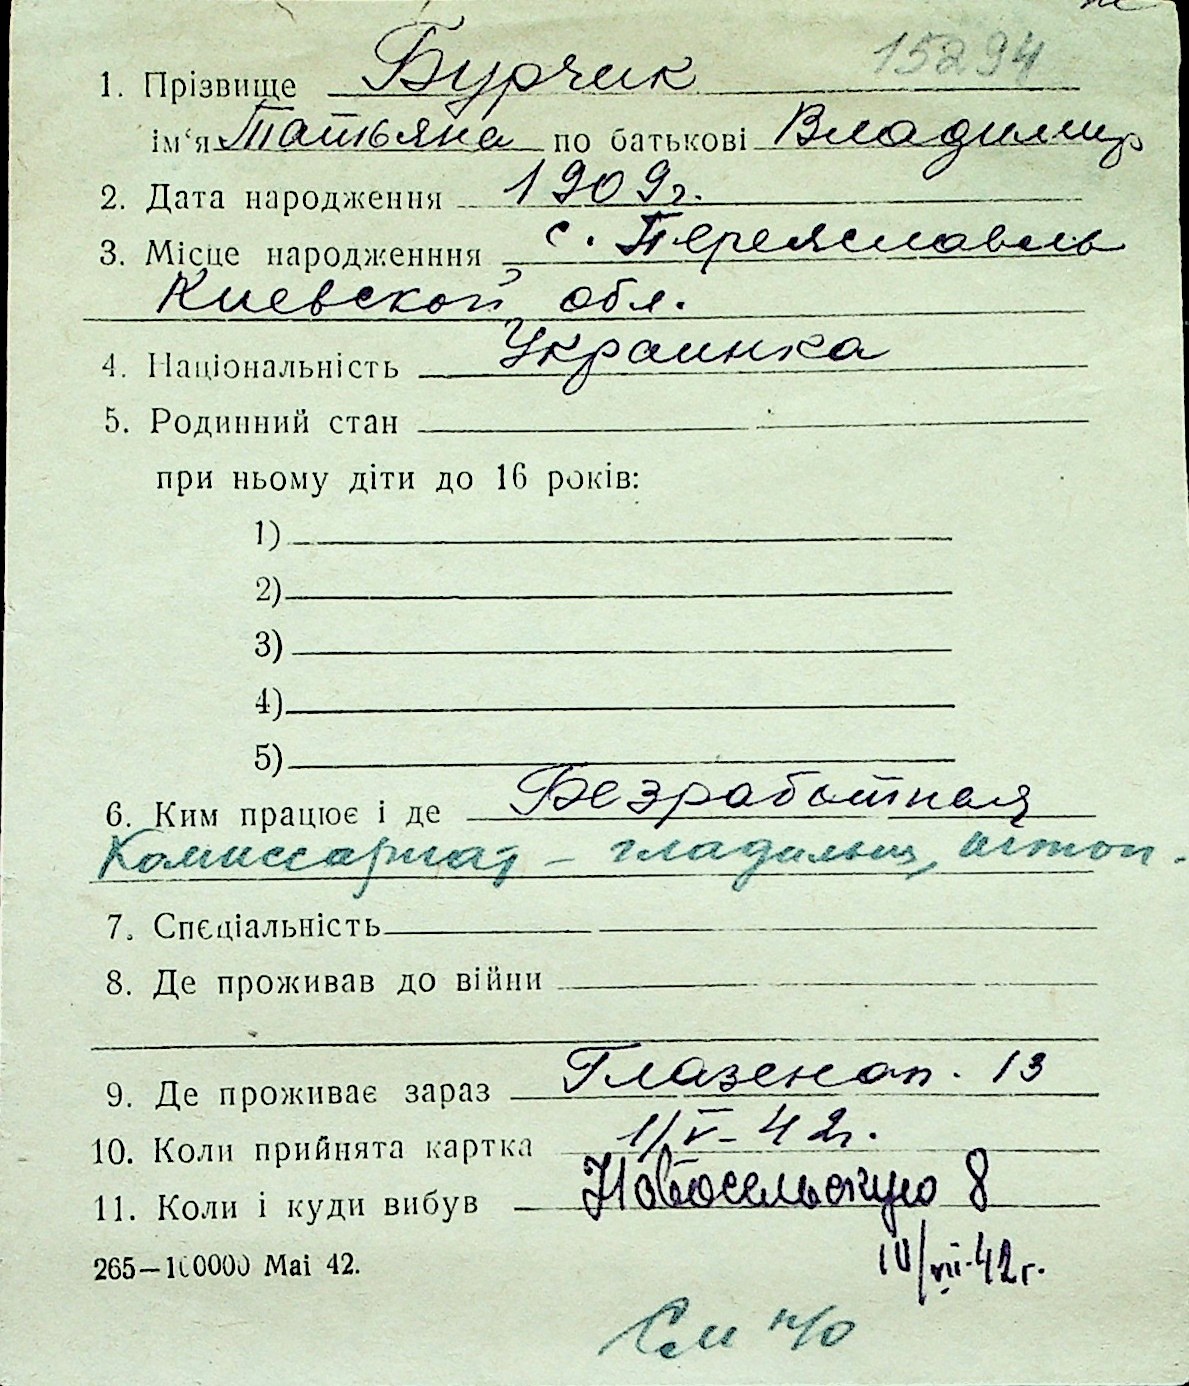 15294
1. Прізвище Бурчик
ім‘я Татьяна по батькові Владимир
2. Дата народження 1909г.
3. Місце народженння с. Переяславль
Киевской обл.
4. Національність Украинка
5. Родинний стан
при ньому діти до 16 років:
1)
2)
3)
4)
5)
6. Ким працює і де Безработная
Комиссариат – гладильщ,
7. Спєціальність
8. Де проживав до війни
9. Де проживає зараз Глазенап. 13
10. Коли прийнята картка 1/V-42г.
11. Коли і куди вибув Новосельскую 8
265—100000 Mai 42.
10/VII-42г.
См н/о